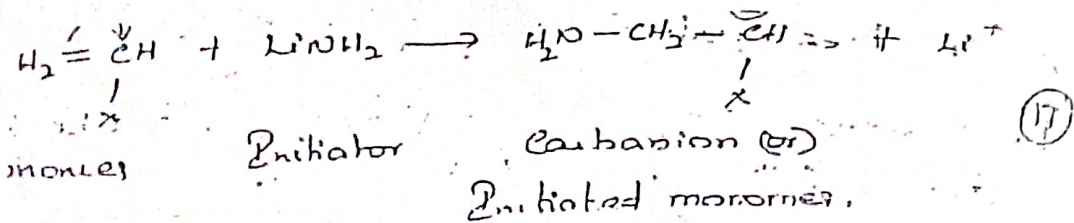 H₂ = CH + LiNH₂ → H₂N – CH₂ – CH + Li⁺
X X
17
Initiator Carbanion (or)
Initiated monomer.